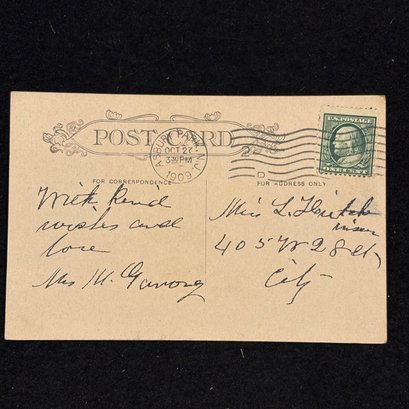 POST CARD
ASBURY PARK, N.J.
OCT 27
3 30 PM
1909
U.S. POSTAGE
ONE CENT
FOR CORRESPONDENCE
FOR ADDRESS ONLY
With Kind
wishes and
love
Mrs M.
Miss L.
405 W 28 St
City